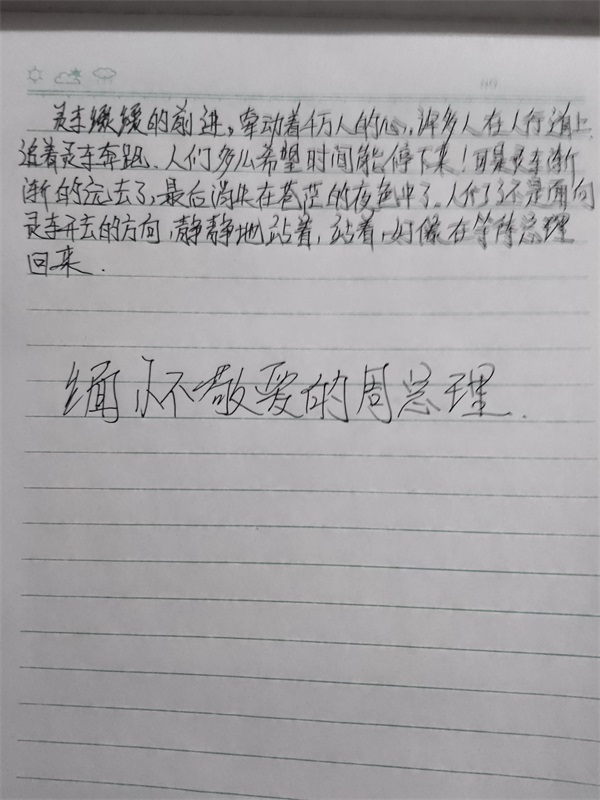 灵车缓缓的前进,牵动着千万人的心,许多人在人行道上
追着灵车奔跑、人们多么希望时间能停下来!可是灵车渐
渐的远去了,最后消失在苍茫的夜色中了。人们还是面向
灵车开去的方向,静静地站着,站着,好像在等待总理
回来.
缅怀敬爱的周总理.